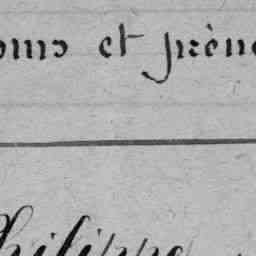 oms et prén
Philippe